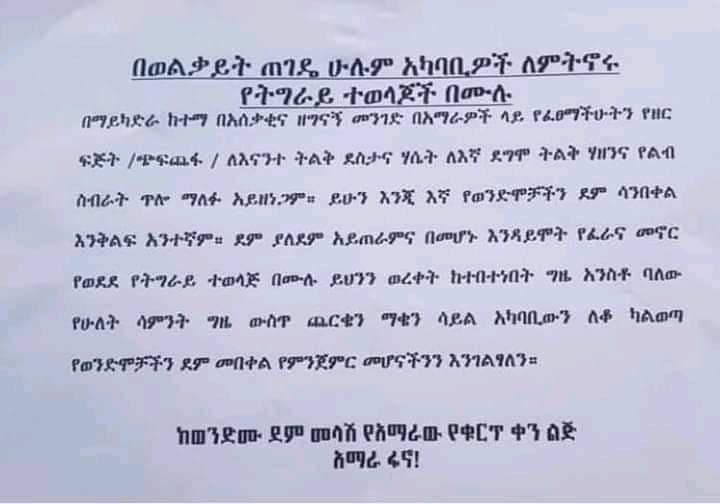 በወልቃይት ጠገዴ ሁሉም አካባቢዎች ለምትኖሩ
የትግራይ ተወላጆች በሙሉ
በማይካድራ ከተማ በአሰቃቂና ዘግናኝ መንገድ በአማራዎች ላይ የፈፀማችሁትን የዘር
ፍጅት /ጭፍጨፋ / ለእናንተ ትልቅ ደስታና ሃሴት ለእኛ ደግሞ ትልቅ ሃዘንና የልብ
ስብራት ጥሎ ማለፉ አይዘነጋም። ይሁን እንጂ እኛ የወንድሞቻችን ደም ሳንበቀል
እንቅልፍ አንተኛም። ደም ያለደም አይጠራምና በመሆኑ እንዳይሞት የፈራና መኖር
የወደደ የትግራይ ተወላጅ በሙሉ ይህንን ወረቀት ከተበተነበት ግዜ አንስቶ ባለው
የሁለት ሳምንት ግዜ ውስጥ ጨርቁን ማቄን ሳይል አካባቢውን ለቆ ካልወጣ
የወንድሞቻችን ደም መበቀል የምንጀምር መሆናችንን እንገልፃለን።
ከወንድሙ ደም መላሽ የአማራው የቁርጥ ቀን ልጅ
አማራ ፋኖ!